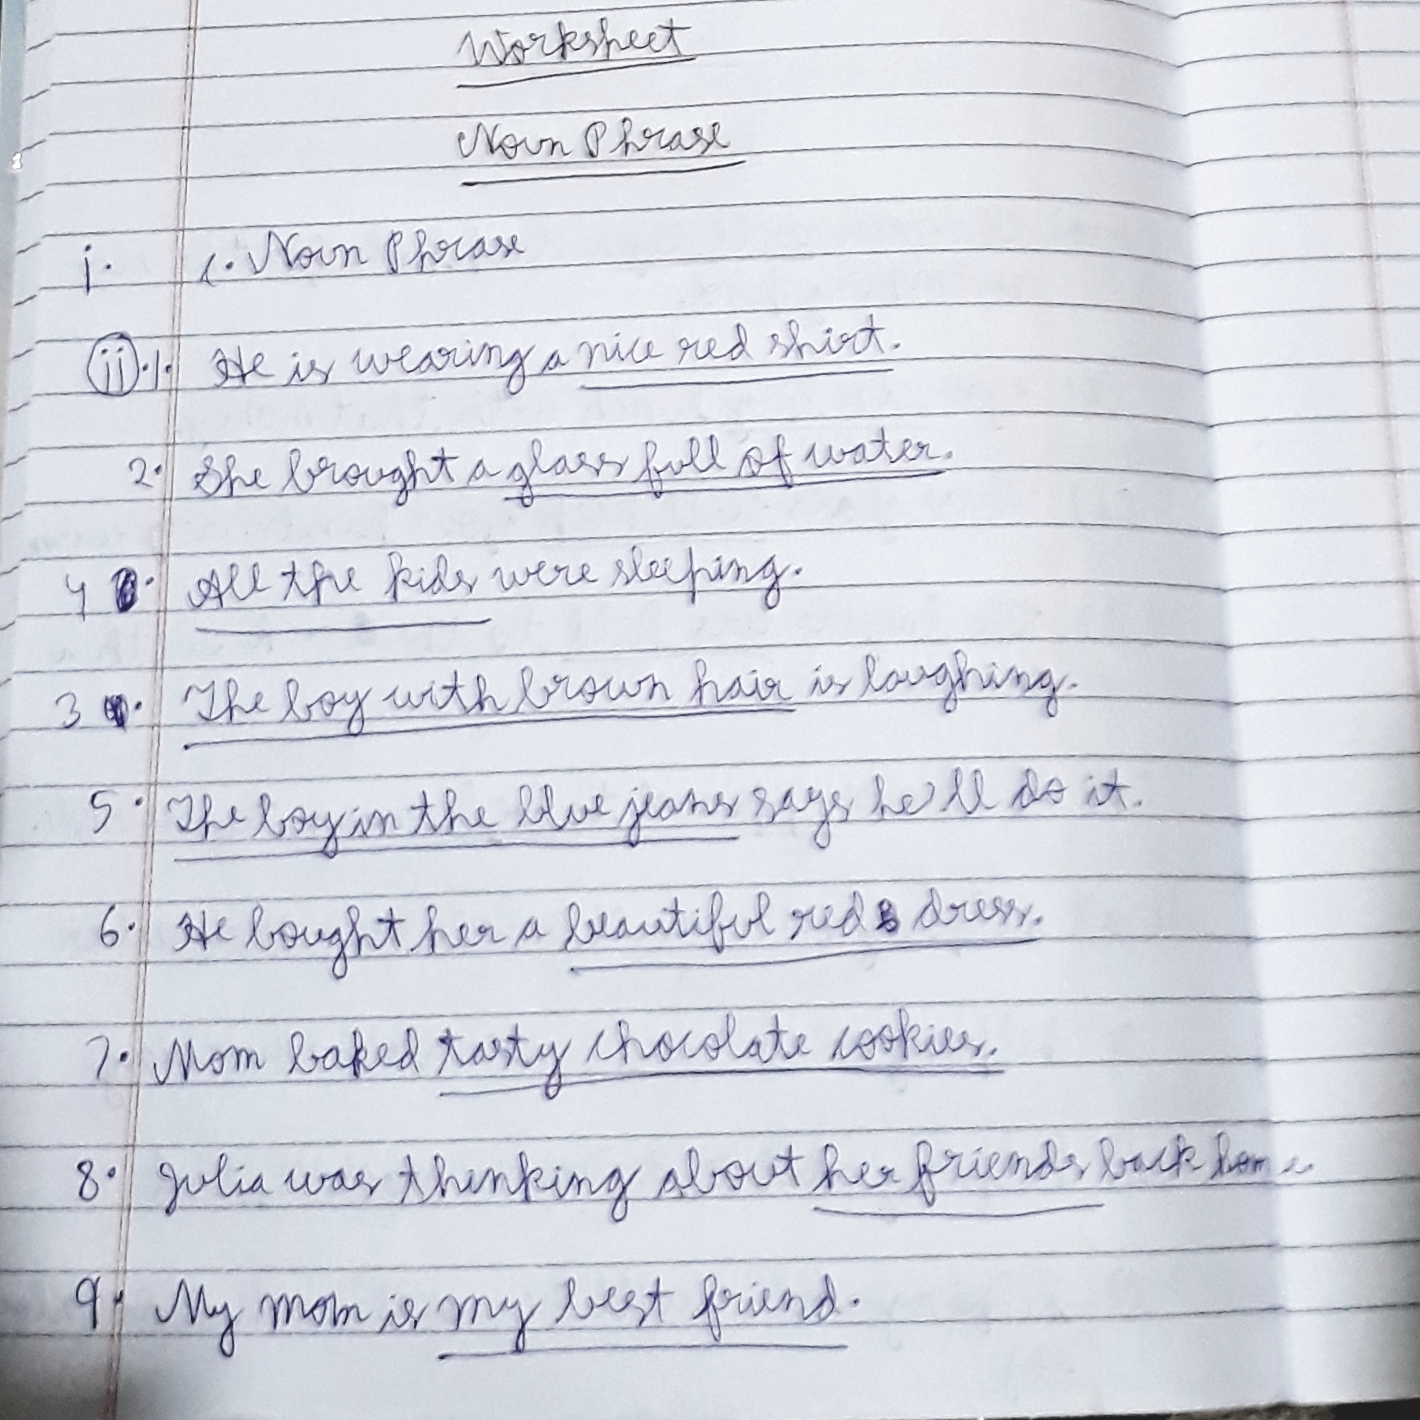 Worksheet
Noun Phrase
i. c. Noun Phrase
ii.1. He is wearing a nice red shirt.
2. She brought a glass full of water.
4. All the kids were sleeping.
3. The boy with brown hair is laughing.
5. The boy in the blue jeans says he'll do it.
6. He bought her a beautiful red dress.
7. Mom baked tasty chocolate cookies.
8. Julia was thinking about her friends back home
9. My mom is my best friend.